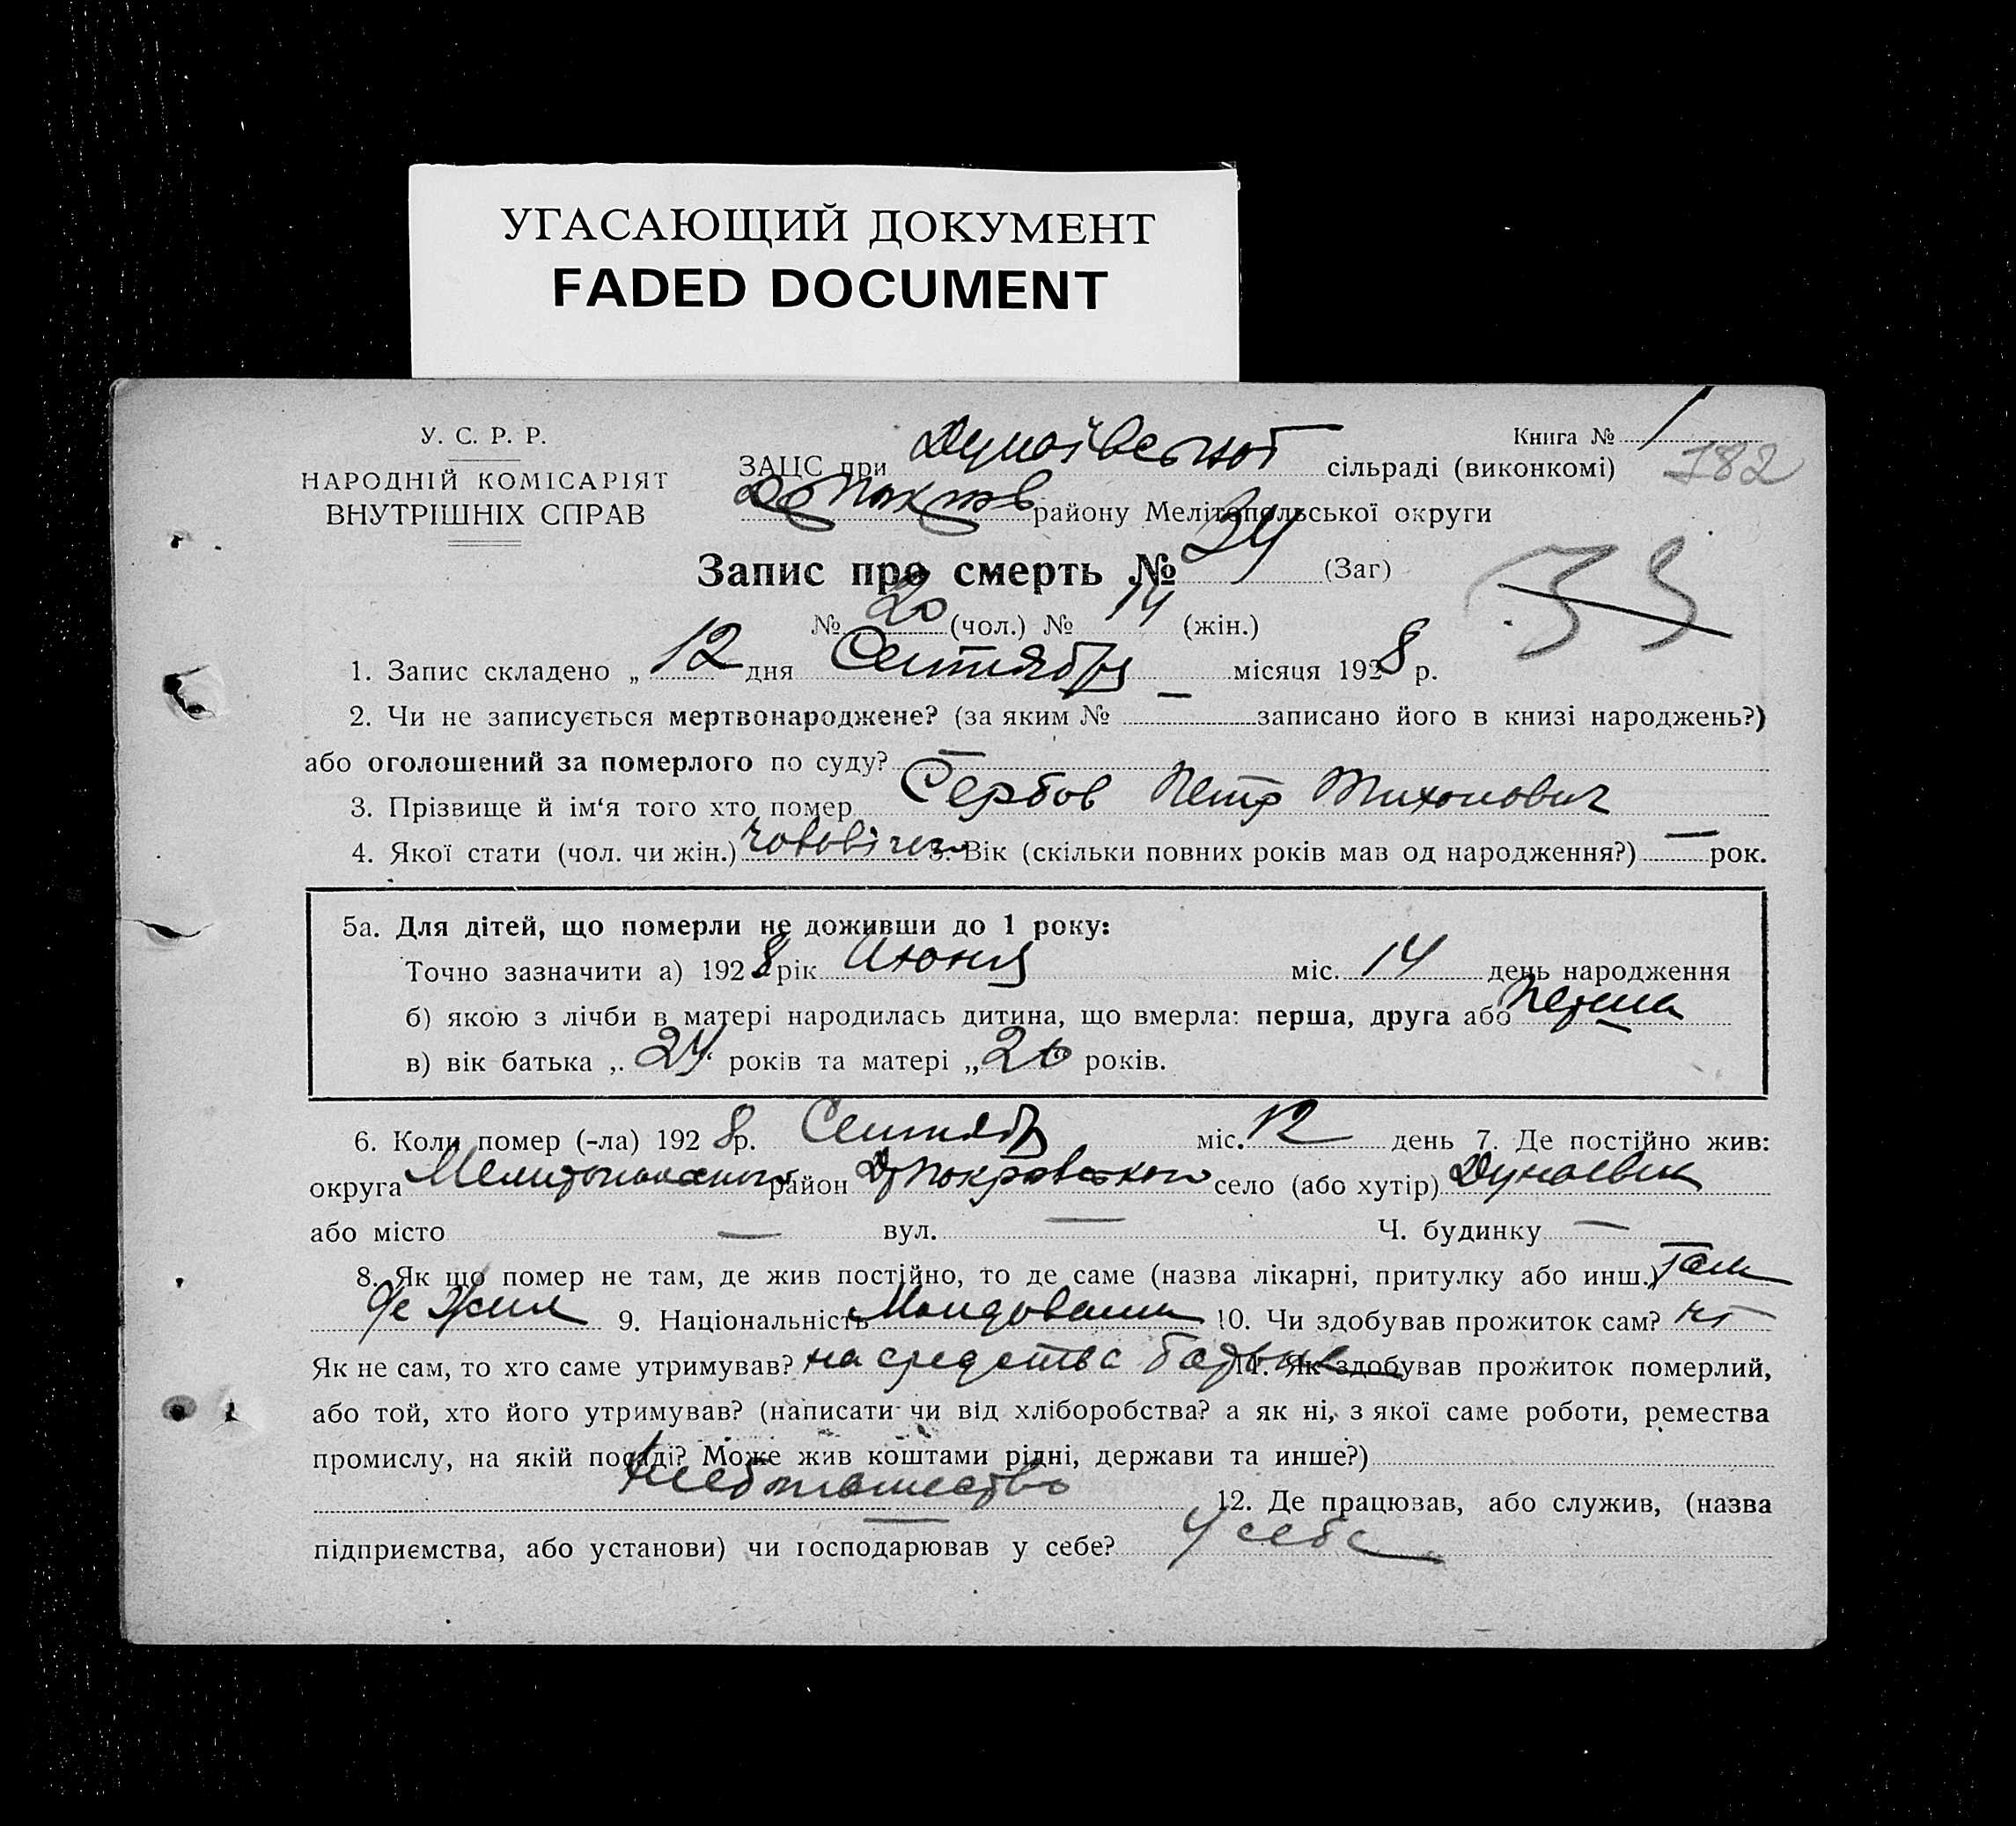 УГАСАЮЩИЙ ДОКУМЕНТ
FADED DOCUMENT
У. С. Р. Р.
НАРОДНІЙ КОМІСАРІЯТ
ВНУТРІШНІХ СПРАВ
Книга № 1
182
ЗАЦС при Дунаївської сільраді (виконкомі)
району Мелітопольської округи
Запис про смерть № 34 (Заг)
№ 20 (чол.) № 14 (жін.)
33
1. Запис складено „ 12 дня Сентября місяця 1928 р.
2. Чи не записується мертвонароджене? (за яким № — записано його в книзі народжень?)
або оголошений за померлого по суду? —
3. Прізвище й ім‘я того хто помер Сербов Петр Тихонович
4. Якої стати (чол. чи жін.) чоловічеи 5. Вік (скільки повних років мав од народження?) — рок.
5а. Для дітей, що померли не доживши до 1 року:
Точно зазначити а) 1928 рік Июня міс. 14 день народження
б) якою з лічби в матері народилась дитина, що вмерла: перша, друга або перша
в) вік батька „ 24 років та матері „ 20 років.
6. Коли помер (-ла) 1928 р. Сентябр міс. 12 день 7. Де постійно жив:
округа район Покровском село (або хутір) Дунаевка
або місто — вул. — Ч. будинку —
8. Як що помер не там, де жив постійно, то де саме (назва лікарні, притулку або инш.) там
де жил 9. Національність Молдован 10. Чи здобував прожиток сам? нт
Як не сам, то хто саме утримував? на средства батька 11. Як здобував прожиток померлий,
або той, хто його утримував? (написати чи від хліборобства? а як ні, з якої саме роботи, ремества
промислу, на якій посаді? Може жив коштами рідні, держави та инше?)
12. Де працював, або служив, (назва
підприємства, або установи) чи господарював у себе? У себе